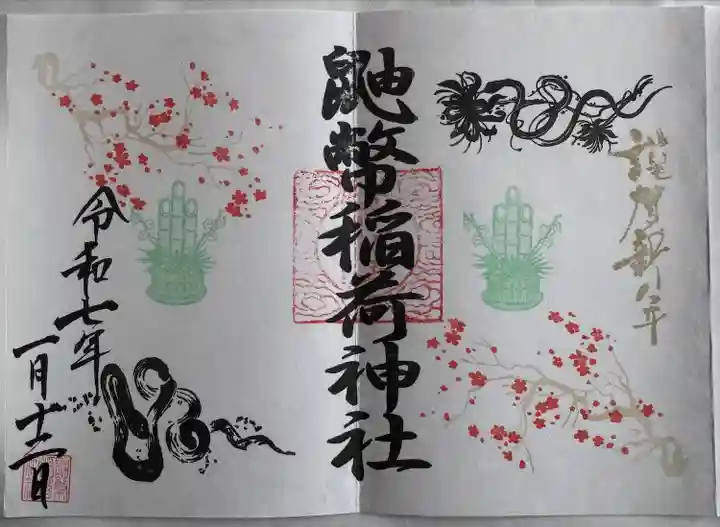 謹賀新年
鼬幣稲荷神社
令和七年
一月十三日